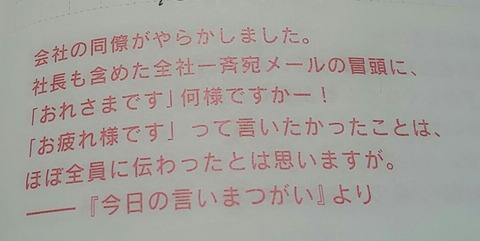 会社の同僚がやらかしました。
社長も含めた全社一斉宛メールの冒頭に、
「おれさまです」何様ですかー！
「お疲れ様です」って言いたかったことは、
ほぼ全員に伝わったとは思いますが。
——『今日の言いまつがい』より